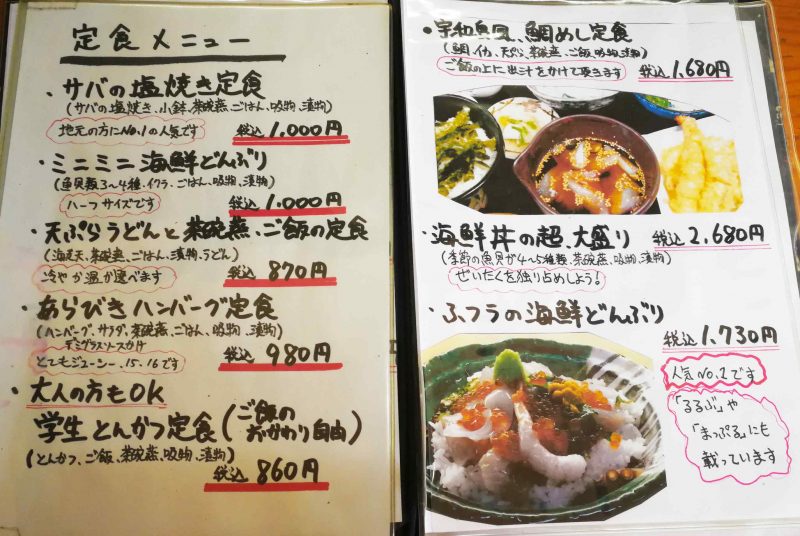 定食メニュー
・サバの塩焼き定食
(サバの塩焼き、小鉢、茶碗蒸、ごはん、吸物、漬物)
地元の方にNo.1の人気です
税込 1,000円
・ミニミニ海鮮どんぶり
(魚貝類3〜4種、イクラ、ごはん、吸物、漬物)
ハーフサイズです
税込 1,000円
・天ぷらうどんと茶碗蒸、ご飯の定食
(海老天、茶碗蒸、ごはん、漬物、うどん)
冷やか温が選べます
税込 870円
・あらびきハンバーグ定食
(ハンバーグ、サラダ、茶碗蒸、ごはん、吸物、漬物)
デミグラスソースかけ
とてもジューシー、15.16です
税込 980円
・大人の方もOK
学生とんかつ定食(ご飯のおかわり自由)
(とんかつ、ご飯、茶碗蒸、吸物、漬物)
税込 860円
・宇和島風、鯛めし定食
(鯛、イカ、天ぷら、茶碗蒸、ご飯、吸物、漬物)
ご飯の上に出汁をかけて頂きます
税込 1,680円
・海鮮丼の超、大盛り 税込 2,680円
(季節の魚貝が4〜5種類、茶碗蒸、吸物、漬物)
ぜいたくを独り占めしよう!
・ふフラの海鮮どんぶり
税込 1,730円
人気No.2です
「るるぶ」や
「まっぷる」にも
載っています